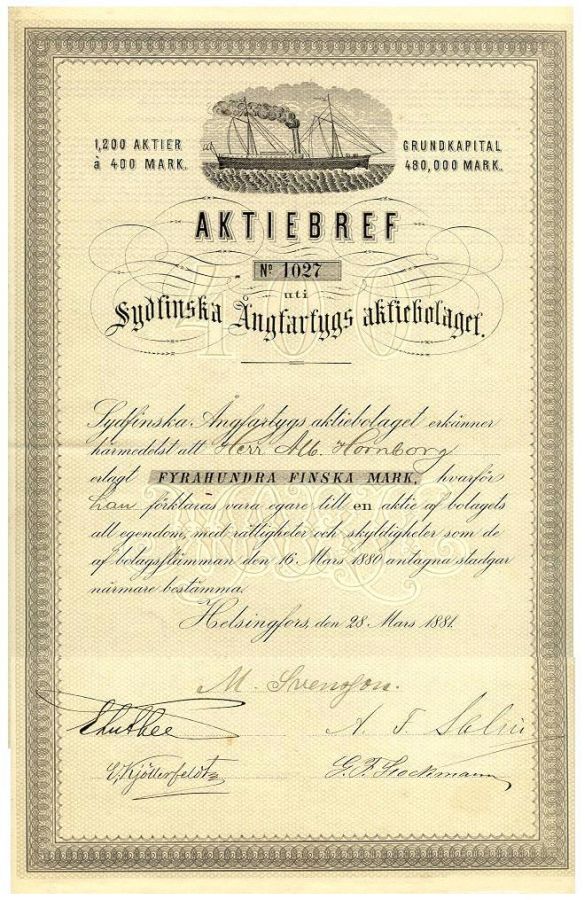 1,200 AKTIER
à 400 MARK.
GRUNDKAPITAL
480,000 MARK.
AKTIEBREF
No 1027
uti
Sydfinska Ångfartygs aktiebolaget.
400
Sydfinska Ångfartygs aktiebolaget erkänner
härmedelst att Herr Alb. Hörnborg
erlagt FYRAHUNDRA FINSKA MARK, hvarför
han förklaras vara egare till en aktie af bolagets
all egendom, med rättigheter och skyldigheter som de
af bolagsstämman den 16 Mars 1880 antagna stadgar
närmare bestämma.
MARK
Helsingfors, den 28 Mars 1881.
M. Svensson.
A. F.
E. Kjöllerfeldt
G. F. Stockmann